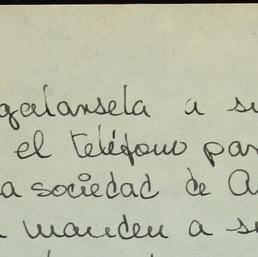 galarsela a su
el teléfono par
a sociedad de A
manden a se